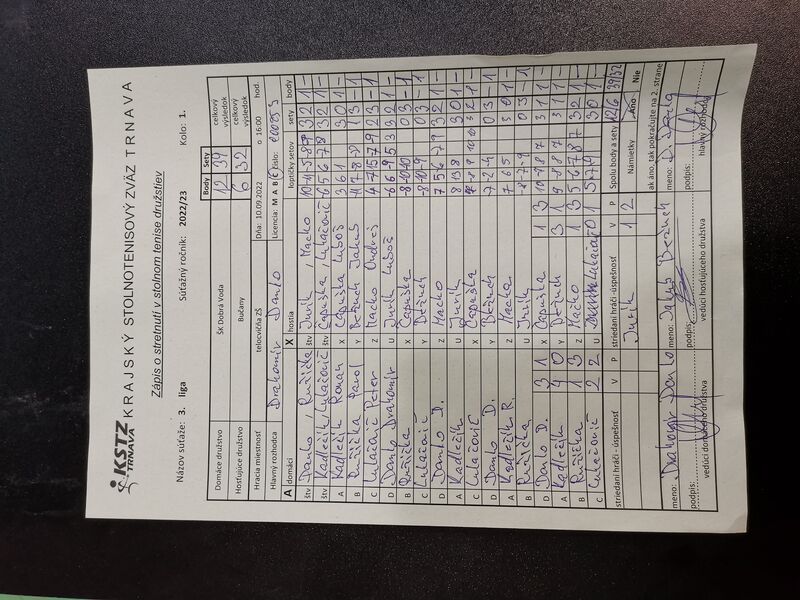 KSTZ
TRNAVA
KRAJSKÝ STOLNOTENISOVÝ ZVÄZ TRNAVA
Zápis o stretnutí v stolnom tenise družstiev
Názov súťaže: 3. liga Súťažný ročník: 2022/23 Kolo: 1.
Body sety
Domáce družstvo ŠK Dobrá Voda 12 39 celkový výsledok
Hosťujúce družstvo Bučany 6 32 celkový výsledok
Hracia miestnosť telocvičňa ZŠ Dňa: 10.09.2022 o 16:00 hod.
Hlavný rozhodca Drahomír Danko Licencia: M A B C číslo:
A domáci X hostia loptičky setov sety body
štv Danko, Ružička štv Jurík, Macko 32 1 –
štv Kadlečík/Lukačovič štv Capuška, Lukačovič 6 5 6 -7 8 32 1 –
A Kadlečík Roman X Capuška Ľuboš 3 6 1 3 0 1 –
B Ružička Pavol Y Bežuch Jakub 1 3 – 1
C Lukačovič Peter Z Macko Ondrej 2 3 – 1
D Danko Drahomír U Jurík Ľuboš 3 2 1 –
B Ružička X Capuška 0 3 – 1
C Lukačovič Y Bežuch 0 3 – 1
D Danko D. Z Macko 7 5 6 -7 -9 3 2 1
A Kadlečík U Jurík 8 13 8 3 0 1
C Lukačovič X Capuška 3 2 1
D Danko D. Y Bežuch -7 -2 -9 0 3 – 1
A Kadlečík R. Z Macko 7 6 5 3 0 1
B Ružička U Jurík -8 -7 -9 0 3 – 1
D Danko D. 3 1 X Capuška 1 3 10 -9 8 7 3 1 1
A Kadlečík 4 0 Y Bežuch 3 1 9 -8 8 7 3 1 1
B Ružička 1 3 Z Macko 1 3 5 6 -7 -8 7 3 2 1
C Lukačovič 2 2 U Lukačovič 0 1 3 0 1
striedaní hráči - úspešnosť V P striedaní hráči - úspešnosť V P Spolu body a sety 12/6 39/32
Jurík 1 2 Námietky Áno Nie
ak áno, tak pokračujte na 2. strane
meno: Drahomír Danko meno: Jakub Bežuch meno:
podpis: podpis: podpis:
vedúci domáceho družstva vedúci hosťujúceho družstva hlavný rozhodca